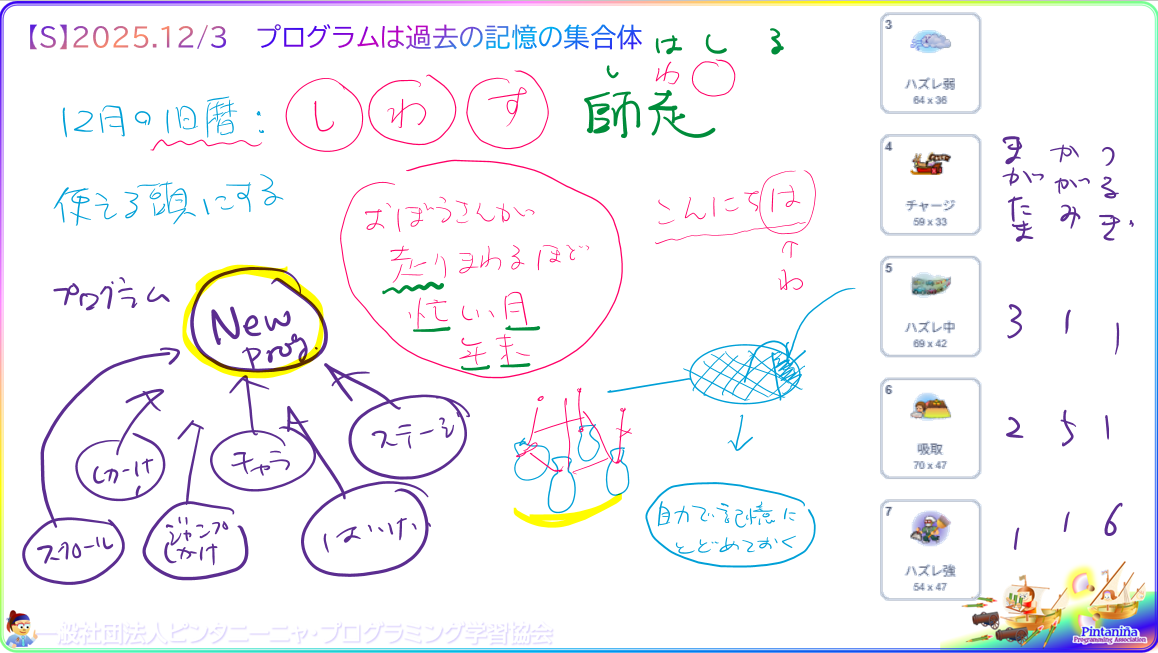 【S】2025.12/3　プログラムは過去の記憶の集合体
はしる
し わ
12月の旧暦： し わ す 師走
使える頭にする
おぼうさんが
走りまわるほど
忙しい月
年末
こんにちは
↑
わ
プログラム
New
prog.
スクロール
しかけ
ジャンプ
しかけ
キャラ
はいけい
ステージ
自力で記憶に
とどめておく
3
ハズレ弱
64 x 36
4
チャージ
59 x 33
5
ハズレ中
69 x 42
6
吸取
70 x 47
7
ハズレ強
54 x 47
ま か つ
が が る
た み ぎ
ま
3 1 1
2 5 1
1 1 6
一般社団法人ピンタニーニャ・プログラミング学習協会
Pintaniña
Programming Association